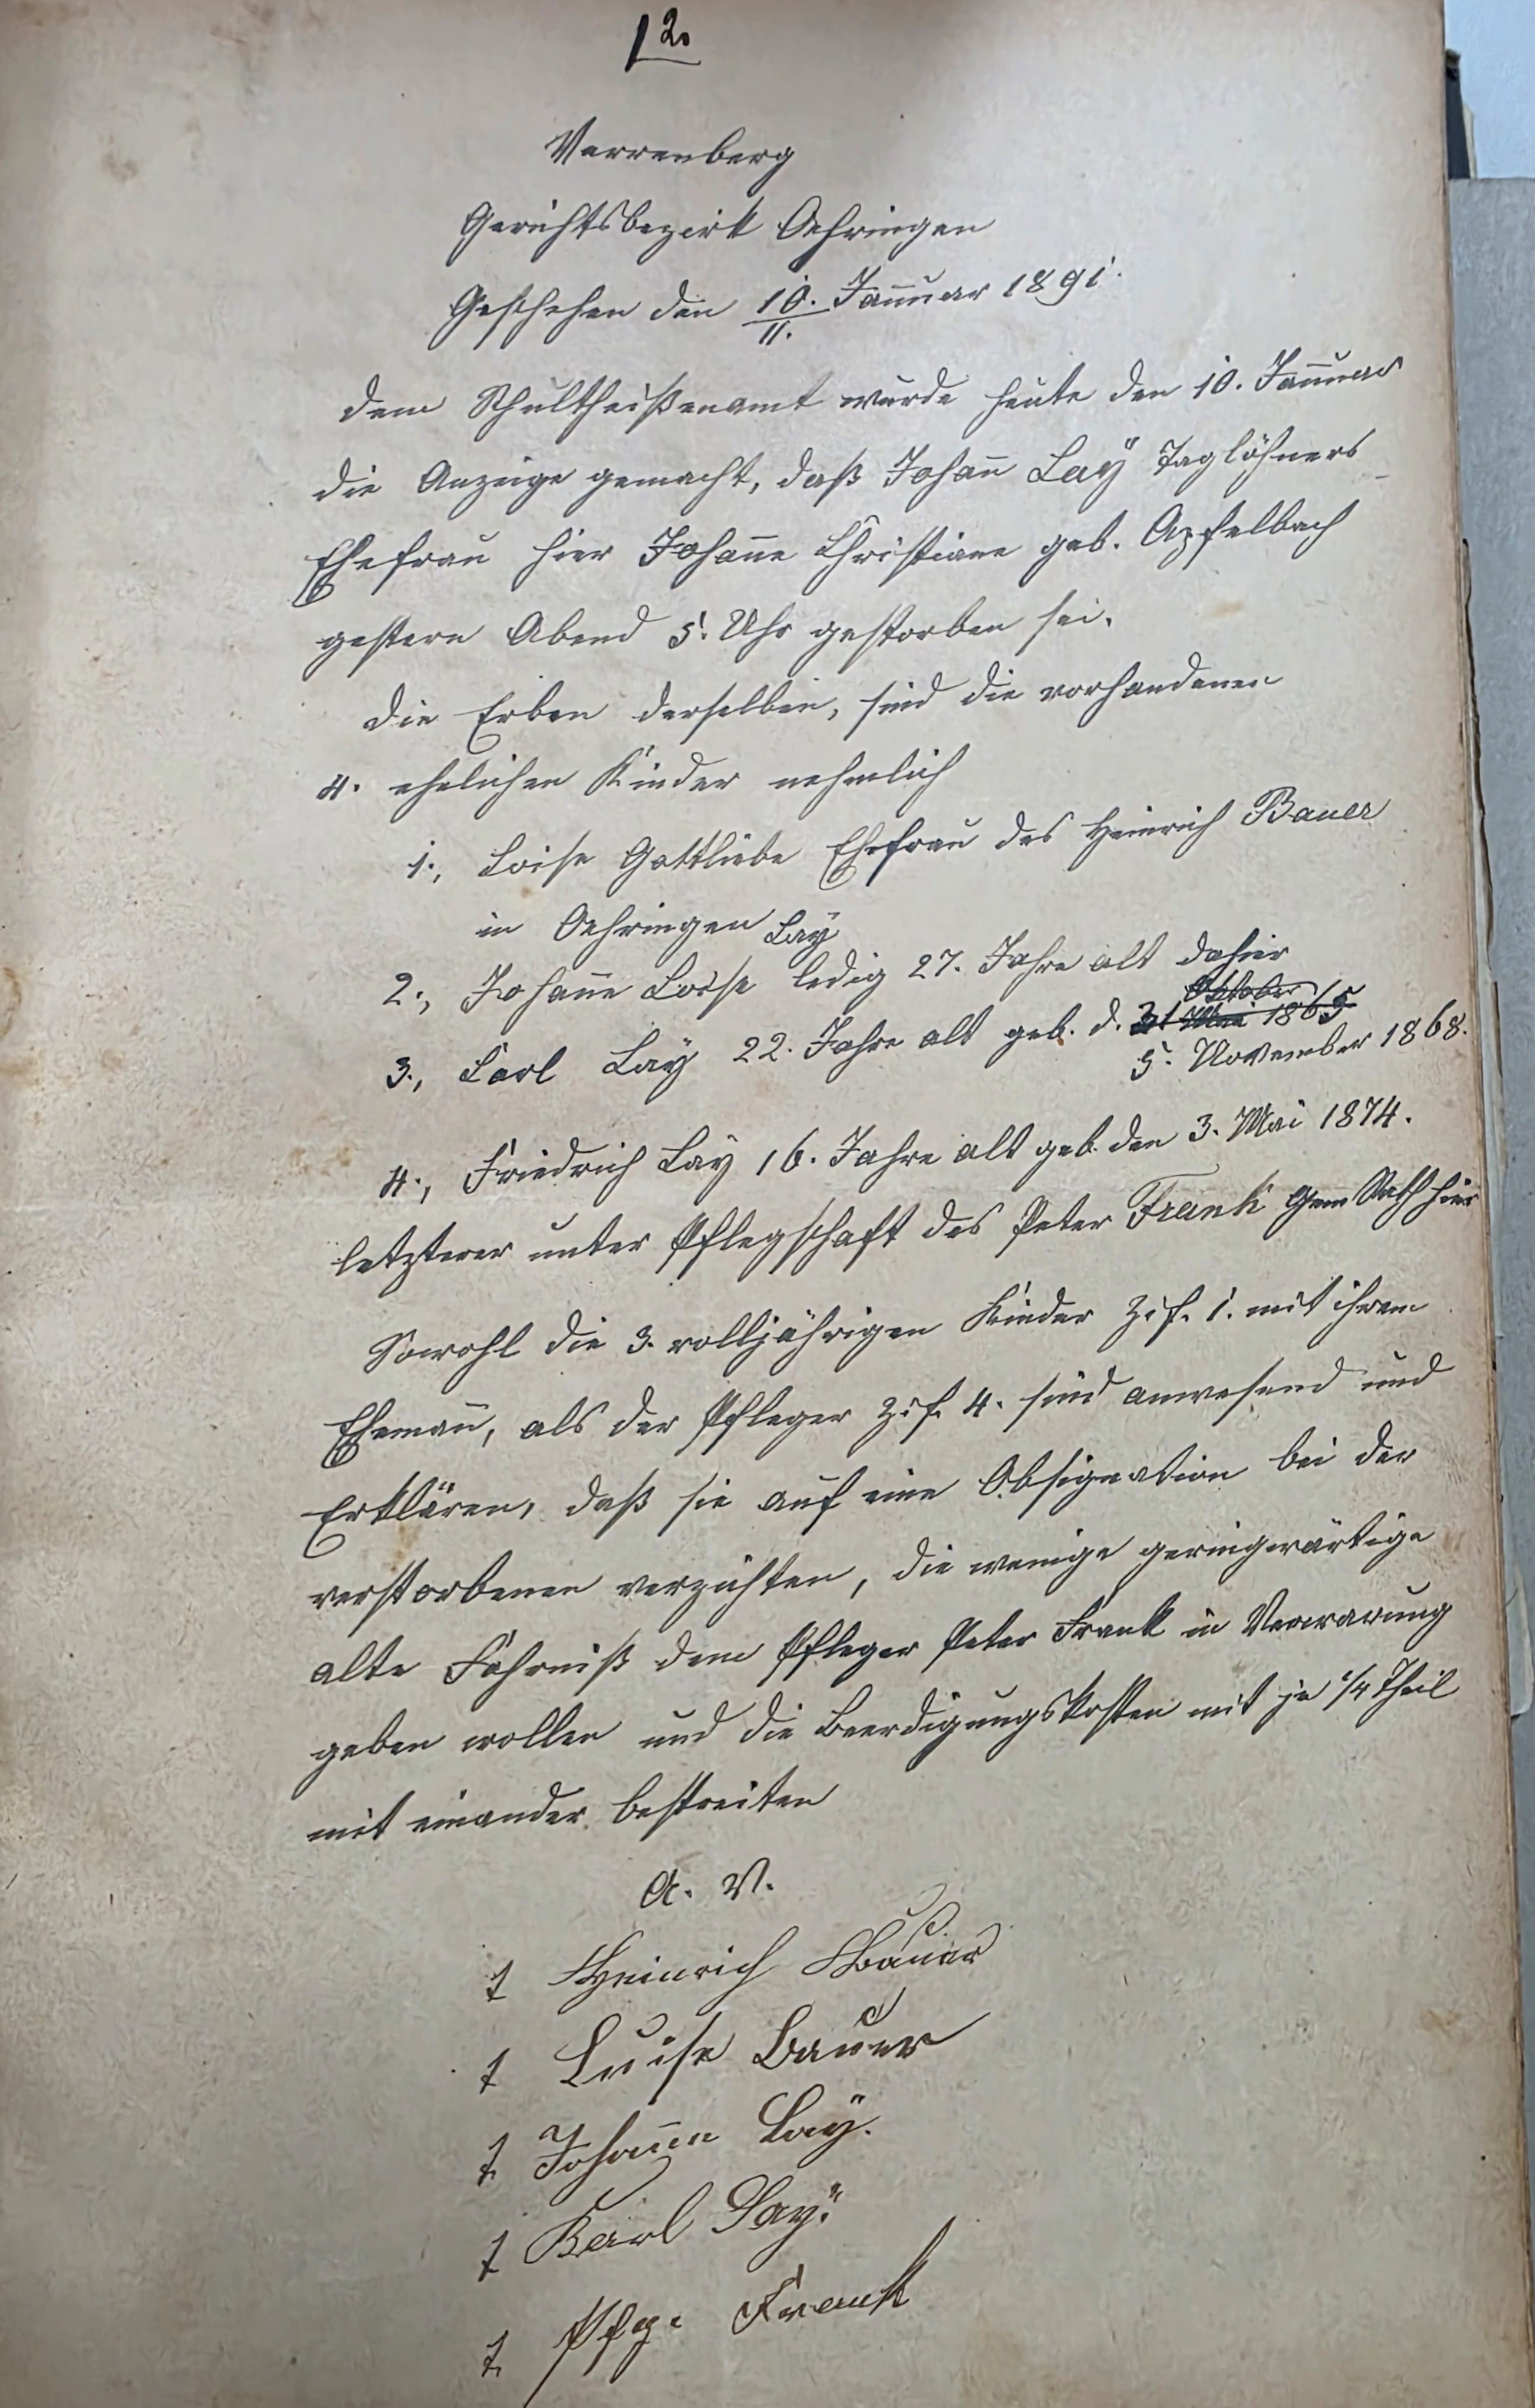 12.
Verrenberg
Gerichtsbezirk Oehringen
Geschehen den 10. Januar 1891.
11.
Dem Schultheißenamt wurde heute den 10. Januar
die Anzeige gemacht, daß Johann Laÿ Taglöhners
Ehefrau hier Johanne Christiane geb. Apfelbach
gestern Abend 5. Uhr gestorben sei.
Die Erben derselben, sind die vorhandenen
4. ehelichen Kinder nehmlich
1., Loise Gottliebe Ehefrau des Heinrich Bauer
in Oehringen
Laÿ
2., Johanne Loise ledig 27. Jahre alt dahier
Oktober
3., Carl Laÿ 22. Jahre alt geb. d. 31 Mai 1865
5. November 1868.
4., Friedrich Laÿ 16. Jahre alt geb. den 3. Mai 1874.
letzterer unter Pflegschaft des Peter Frank Gem Rath hier
Sowohl die 3. volljährigen Kinder Zif. 1. mit ihrem
Ehemann, als der Pfleger Zif. 4. sind anwesend und
Erklären, daß sie auf eine Obsignation bei der
verstorbenen verzichten, die wenige geringwärtige
alte Fahrniß dem Pfleger Peter Frank in Verwarung
geben wollen und die Beerdigungskosten mit je 1/4 Theil
mit einander bestreiten
A. V.
t Heinrich Bauer
t Luise Bauer
t Johanne Laÿ.
t Karl Laÿ.
t Pfg. Frank